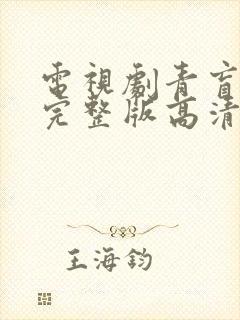 電視劇青盲
完整版高清
王海鈞